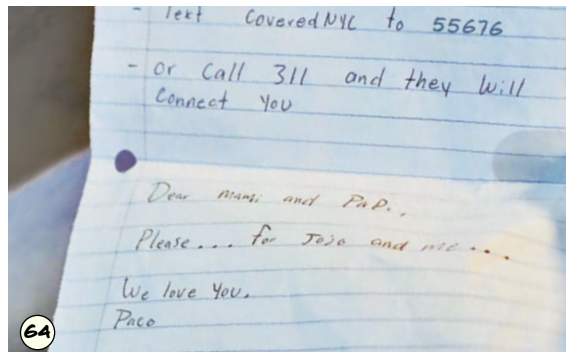 - Text CoveredNYC to 55676
- or call 311 and they will
connect you
Dear mami and Papi,
Please... for JoJo and me...
We love you.
Paco
64